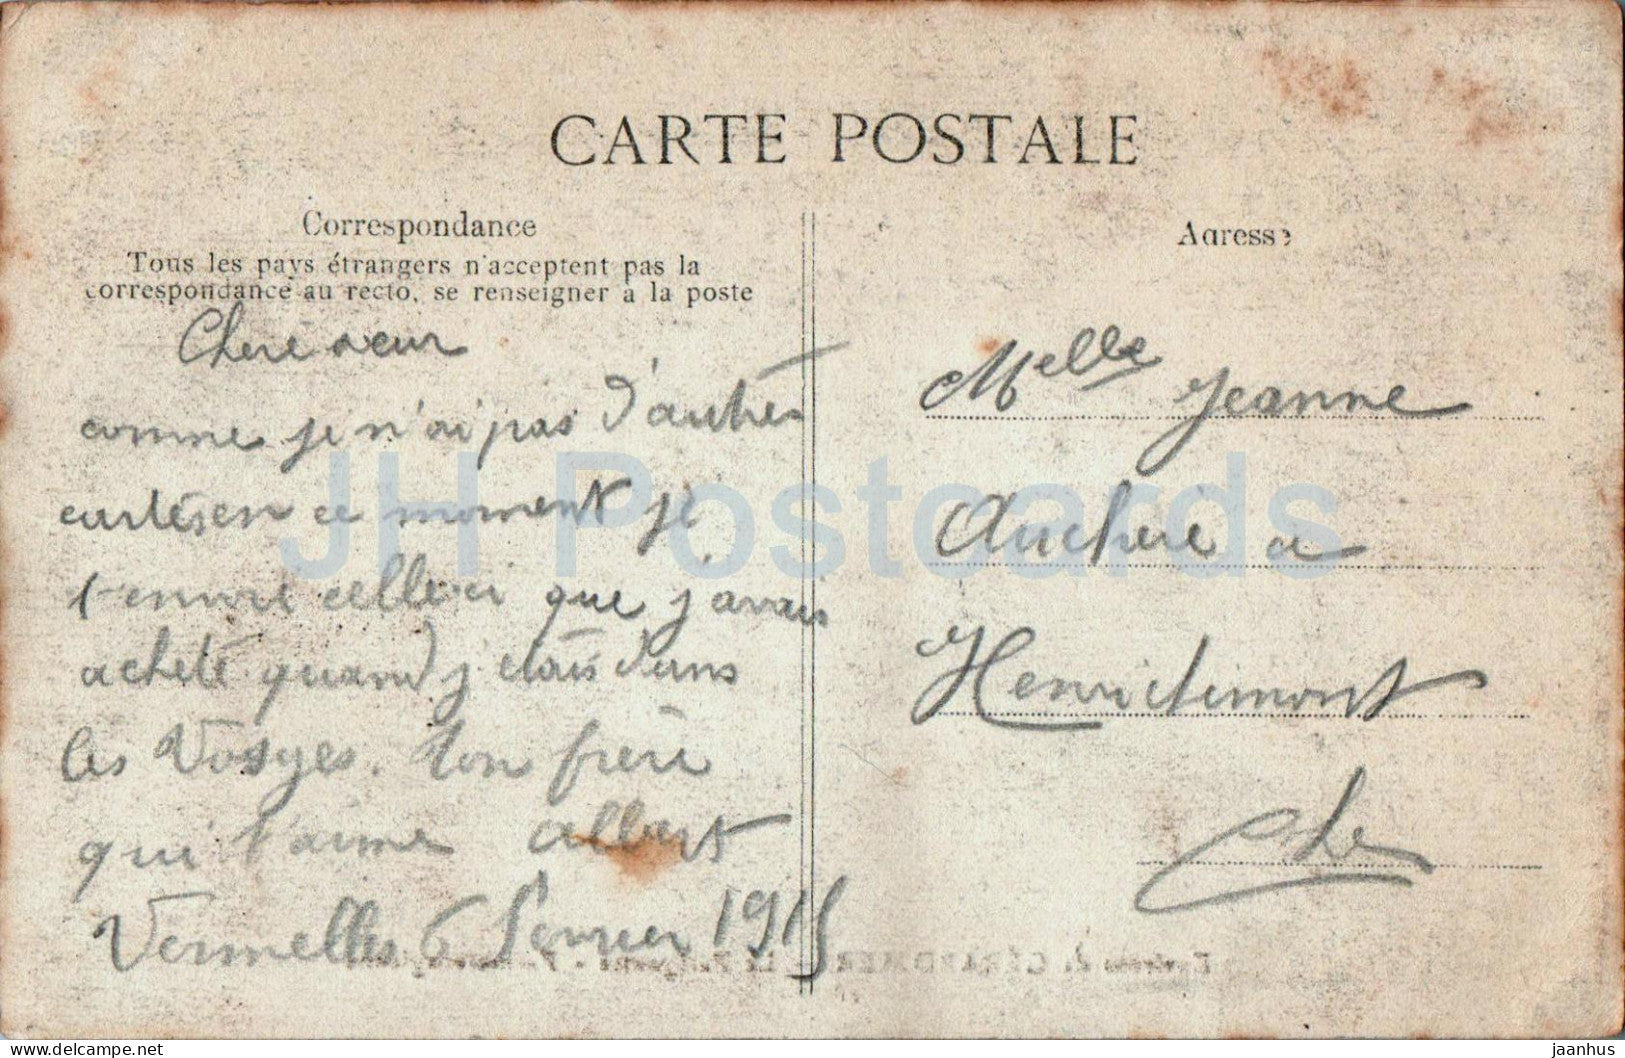 CARTE POSTALE
Correspondance
Tous les pays étrangers n'acceptent pas la
correspondance au recto, se renseigner à la poste
Chere sœur
comme je n'ai pas d'autres
cartes en ce moment je
t'envoie celle ci que j'avais
acheté quand j'étais dans
les Vosges. ton frère
qui t'aime Albert
Vermelles 6 Fevrier 1915
Adresse
Melle Jeanne
Auchere a
Henrichemont
Cher
JH Postcards
delcampe.net
jaanhus